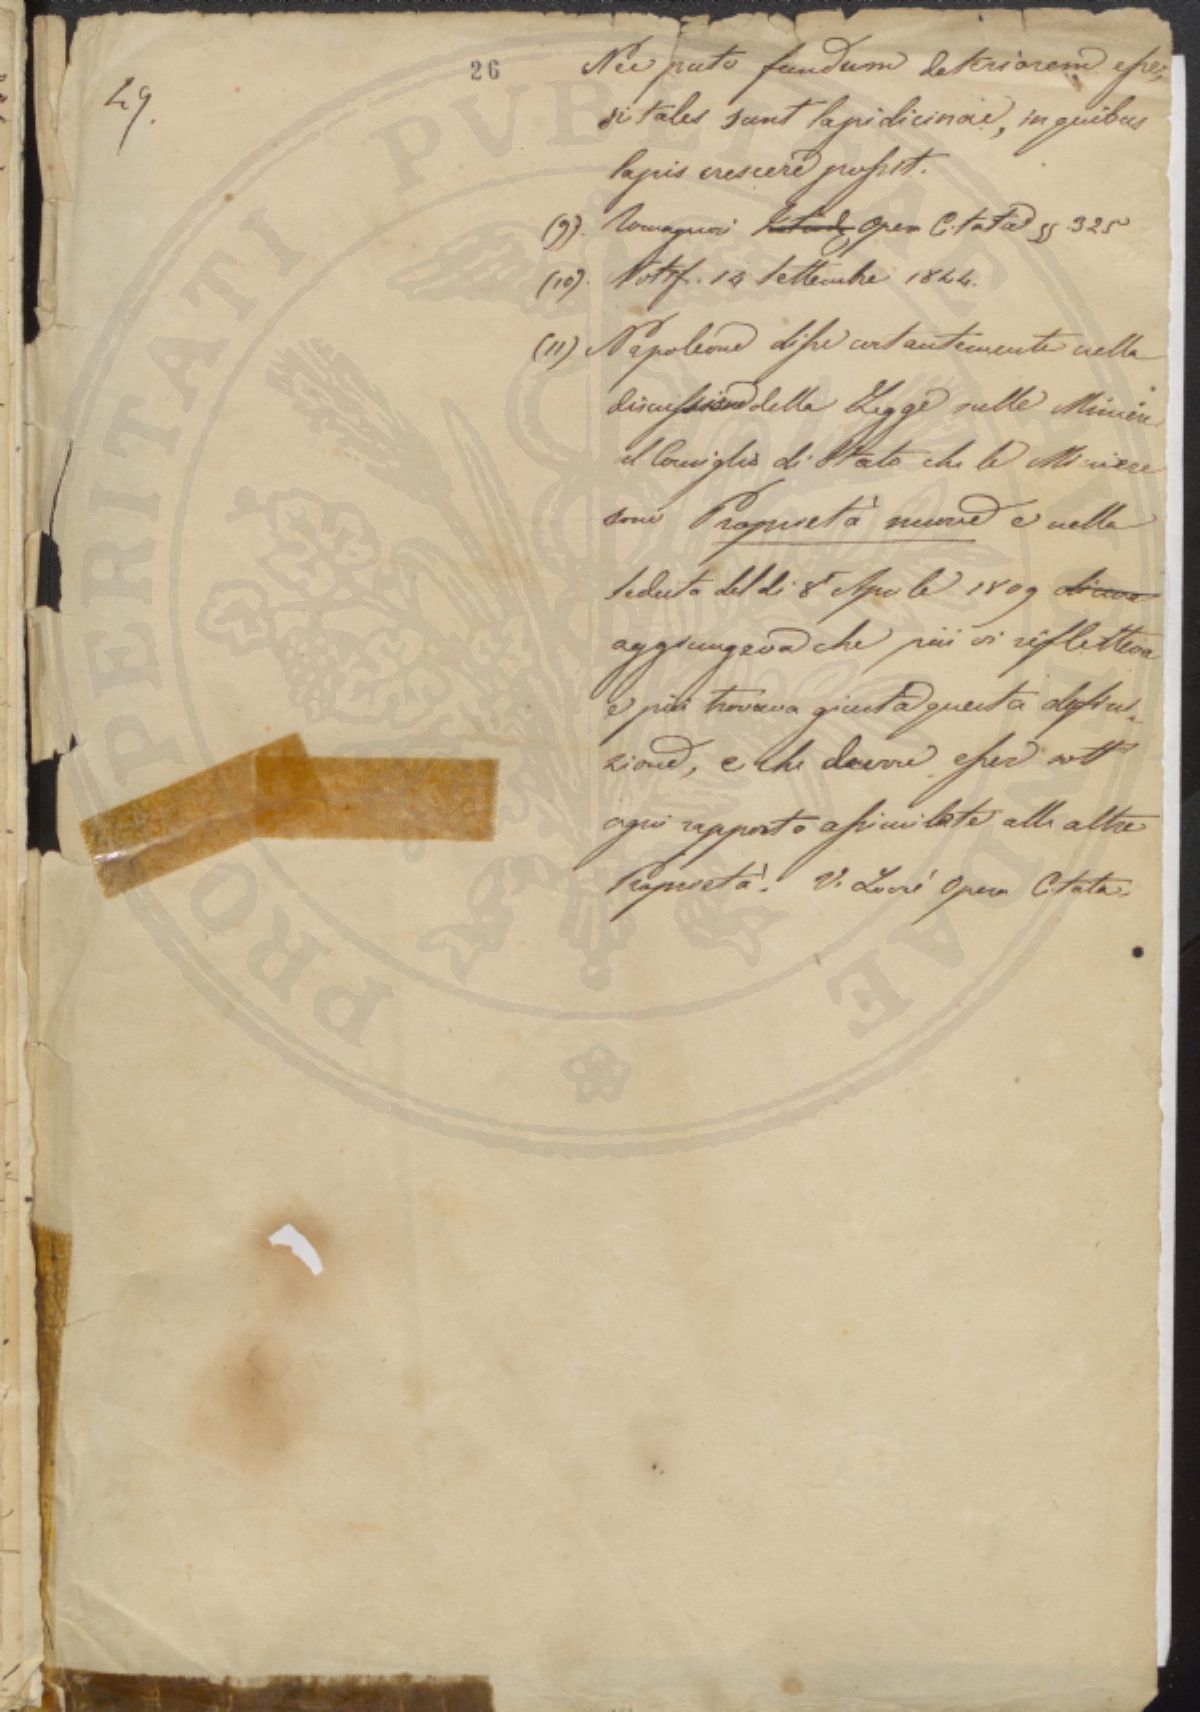 29.
26
Nec puto fundum deteriorem esse,
si tales sunt lapidicinae, in quibus
lapis crescere possit.
(9). Romagnosi Opera Citata §§ 325
(10). Notif. 14 Settembre 1844.
(11) Napoleone disse costantemente nella
discussione della Legge sulle Miniere
al Consiglio di Stato che le Miniere
sono Proprietà nuove e nella
seduta del dì 8 Aprile 1809 diceva
aggiungeva che più vi rifletteva
e più trovava giusta questa defini-
zione, e che devono esser sott
ogni rapporto assimilate alle altre
Proprietà. V. Locré Opera Citata.
PROPERITATI PVBLICAE